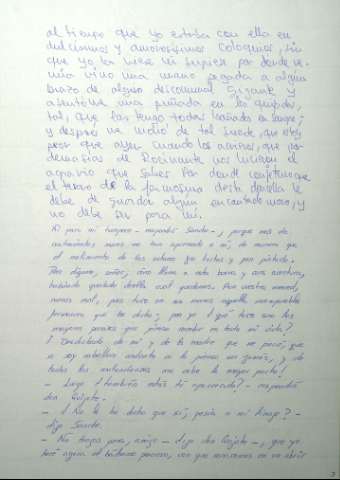 al tiempo que yo estaba con ella en
dulcísimos y amorosísimos coloquios, sin
que yo la viese ni supiese por donde ve-
nía vino una mano pegada a algún
brazo de algún descomunal gigante y
asentóme una puñada en las quijadas,
tal, que las tengo todas bañadas en sangre;
y después me molió de tal suerte, que estoy
peor que ayer cuando los arrieros, que por
demasías de Rocinante nos hicieron el
agravio que sabes. Por donde conjeturo que
el tesoro de la fermosura desta doncella le
debe de guardar algún encantado moro, y
no debe ser para mí.
Ni para mí tampoco - respondió Sancho -, porque más de
cuatrocientos moros me han aporreado a mí, de manera que
el molimiento de las estacas fue tortas y pan pintado.
Pero dígame, señor, ¿cómo llama a esta buena y rara aventura,
habiendo quedado della cual quedamos? Aun vuestra merced,
menos mal, pues tuvo en sus manos aquella incomparable
fermosura que ha dicho; pero yo ¿qué tuve sino los
mayores porrazos que pienso recibir en toda mi vida?
¡Desdichado de mí y de la madre que me parió, que
ni soy caballero andante ni lo pienso ser jamás, y de
todas las malandanzas me cabe la mayor parte!
- Luego ¿también estás tú aporreado? - respondió
don Quijote.
- ¿No le he dicho que sí, pesia a mi linaje? -
dijo Sancho.
- No tengas pena, amigo - dijo don Quijote -, que yo
haré agora el bálsamo precioso, con que sanaremos en un abrir